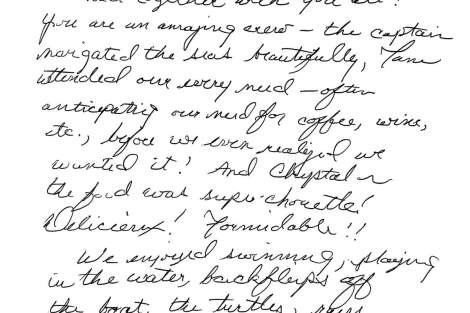 together with you all!
You are an amazing crew – the captain
navigated the seas beautifully,
attended our every need – often
anticipating our need for coffee, wine,
etc., before we even realized we
wanted it! And Chrystal –
the food was super-chouette!
Délicieux! Formidable!!
We enjoyed swimming, playing
in the water, backflips off
the boat, the turtles,